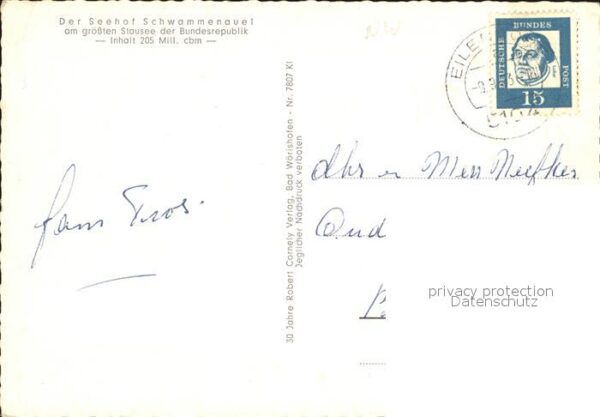 Der Seehof Schwammenauel
am größten Stausee der Bundesrepublik
— Inhalt 205 Mill. cbm —
NW
DEUTSCHE BUNDES POST
15
EILE
5164
30 Jahre Robert Cornely Verlag, Bad Wörishofen - Nr. 7807 Kl
Jeglicher Nachdruck verboten
fam
dhr en Mevr
Oud
privacy protection
Datenschutz